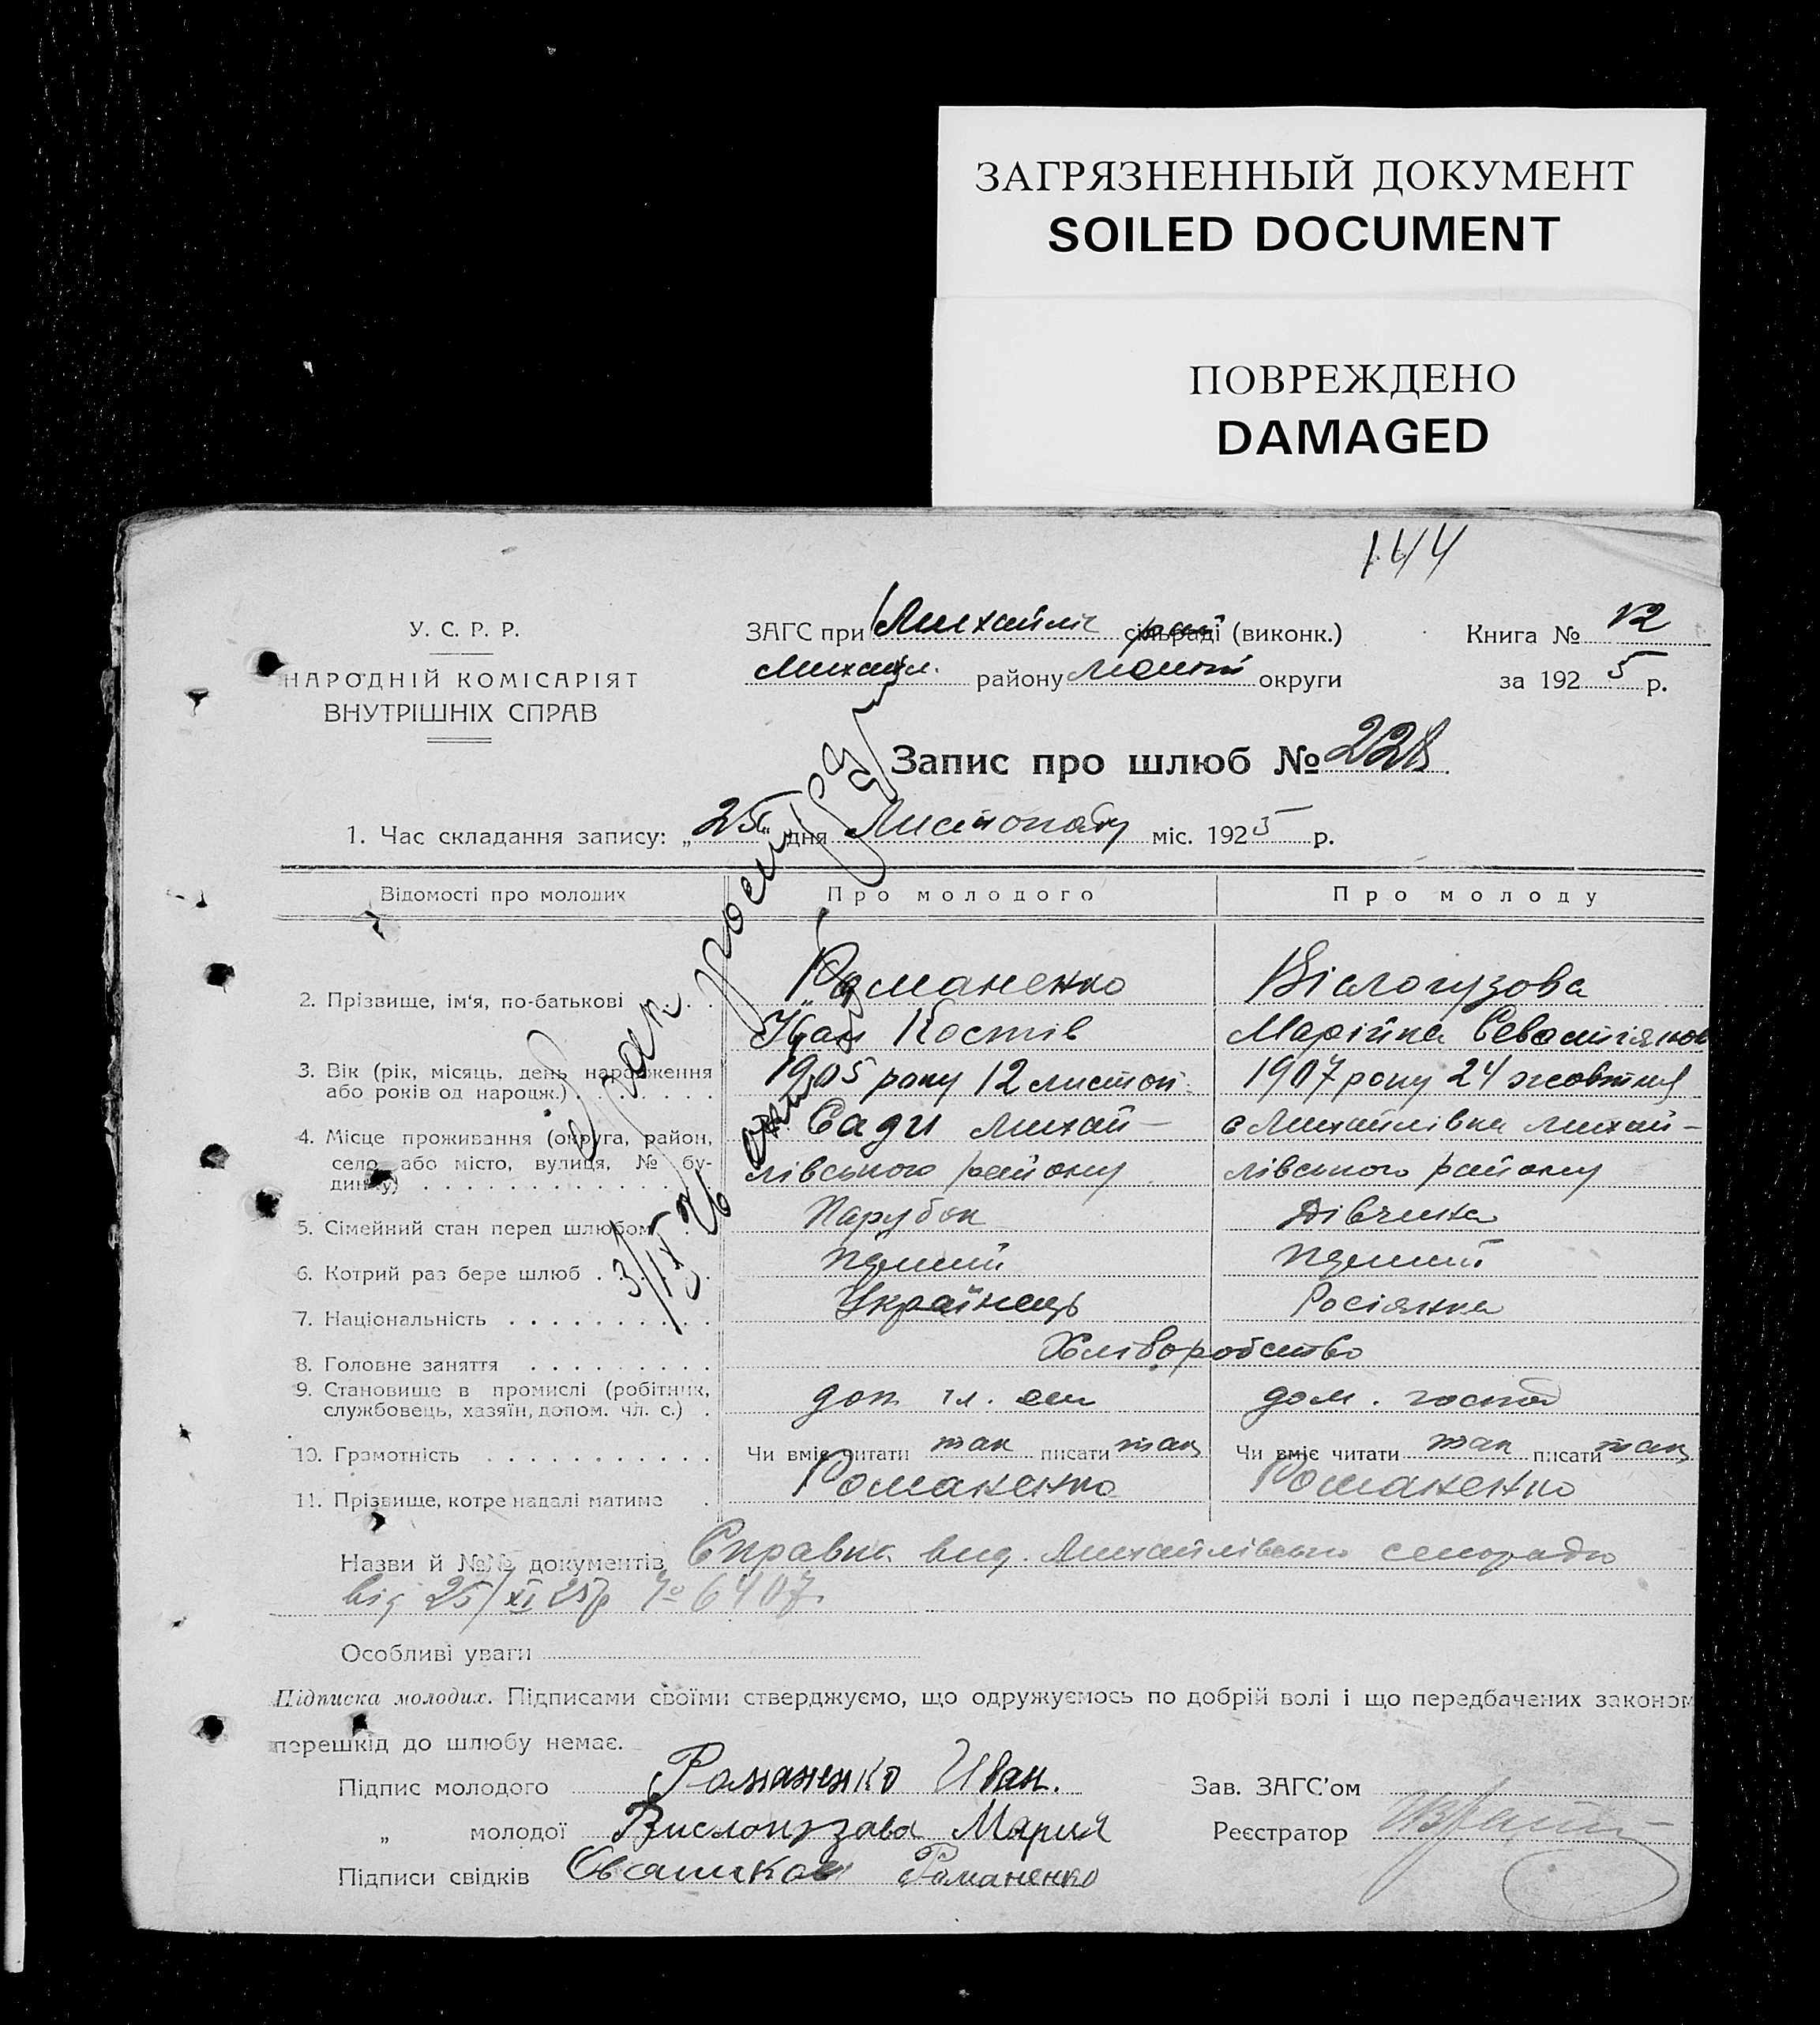 ЗАГРЯЗНЕННЫЙ ДОКУМЕНТ
SOILED DOCUMENT
ПОВРЕЖДЕНО
DAMAGED
144
У. С. Р. Р.
НАРОДНІЙ КОМІСАРІЯТ
ВНУТРІШНІХ СПРАВ
ЗАГС при Михайлів сільраді (виконк.)
Михайл. району округи
Книга № 12
за 1925 р.
Запис про шлюб № 228
1. Час складання запису: „25“ дня Листопаду міс. 1925 р.
Відомості про молодих Про молодого Про молоду
2. Прізвище, ім'я, по-батькові Романенко Вислогузова
Іван Костів Марійка Севастіянов
3. Вік (рік, місяць, день народження або років од народж.) 1905 року 12 листоп. 1907 року 24 жовтня
4. Місце проживання (округа, район, село або місто, вулиця, № будинку) Сади Михай- с Михайлівка михай-
лівського району лівського району
5. Сімейний стан перед шлюбом Парубок Дівчина
6. Котрий раз бере шлюб перший перший
7. Національність Українець Росіянка
8. Головне заняття Хліборобство
9. Становище в промислі (робітник, службовець, хазяїн, допом. чл. с.) доп. чл. сем дом. господ
10. Грамотність Чи вміє читати так писати так Чи вміє читати так писати так
11. Прізвище, котре надалі матиме Романенко Романенко
Назви й №№ документів Справка вид. Михайлівською сельрадою
від 25/XI 25р № 6407
Особливі уваги
Підписка молодих. Підписами своїми стверджуємо, що одружуємось по добрій волі і що передбачених законом
перешкід до шлюбу немає.
Підпис молодого Романенко Иван.
„ молодої Вислогузова Мария
Підписи свідків Романенко
Зав. ЗАГС'ом
Реєстратор
3/IX 26